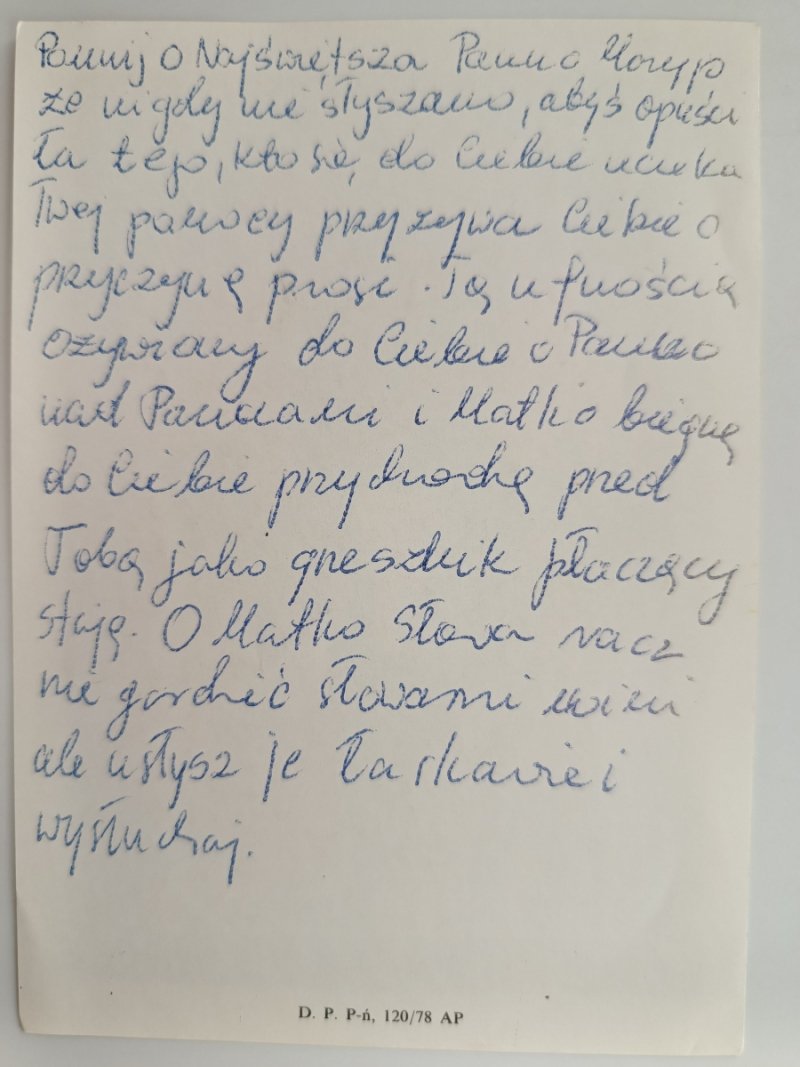 Pomnij o Najświętsza Panno Maryjo
że nigdy nie słyszano, abyś opuści
ła tego, kto się do Ciebie ucieka
Twej pomocy przyzywa Ciebie o
przyczynę prosi. Tą ufnością
ożywiony do Ciebie o Panno
nad Pannami i Matko biegnę
do Ciebie przychodzę przed
Tobą jako grzesznik płaczący
staję. O Matko Słowa racz
nie gardzić słowami moimi
ale usłysz je łaskawie i
wysłuchaj.
D. P. P-ń, 120/78 AP